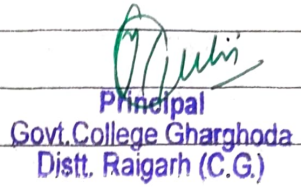 Principal
Govt.College Gharghoda
Distt. Raigarh (C.G.)